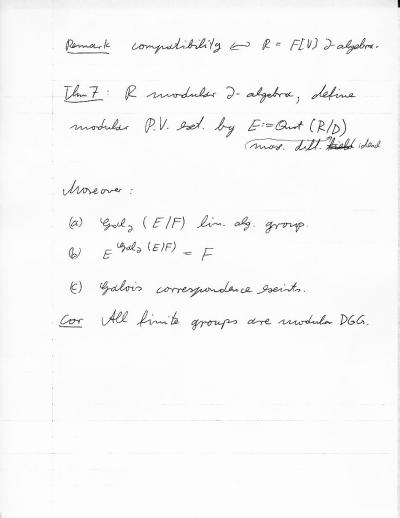 Remark compatibility ↔ R = F[V] ∂-algebra.
Thm 7: R modular ∂-algebra, define
modular P.V. ext. by E := Quot (R/D)
max. diff. ideal
Moreover:
(a) Gal∂ (E/F) lin. alg. group.
(b) E^Gal∂ (E/F) = F
(c) Galois correspondence exists.
Cor All finite groups are modular DGG.